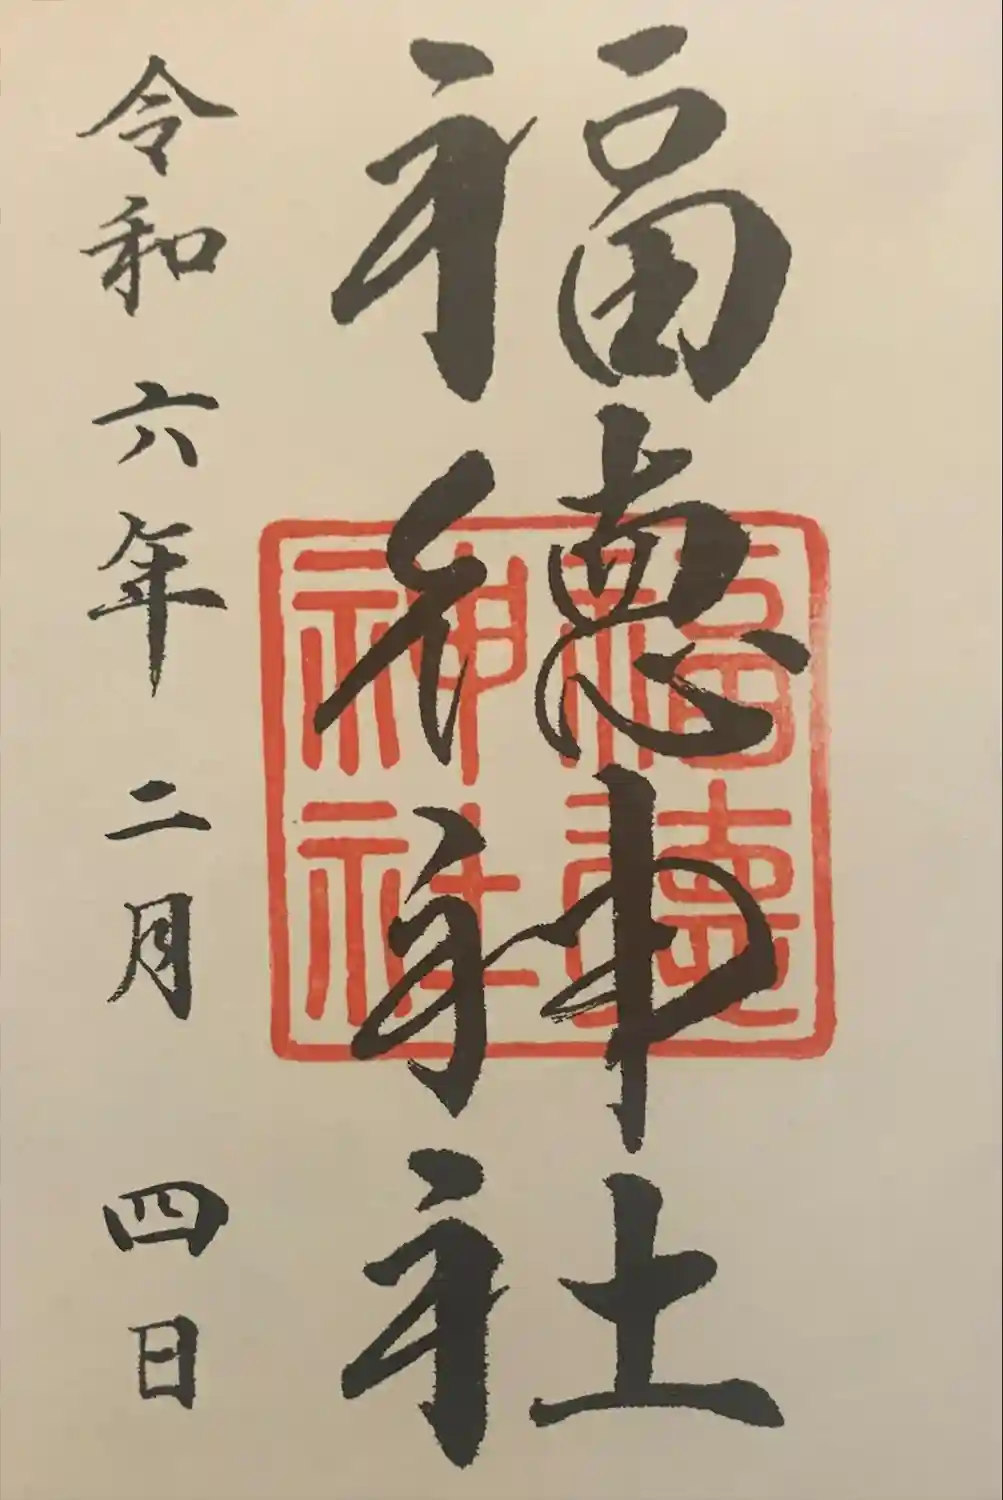 福徳神社
令和六年二月四日
福德
神社